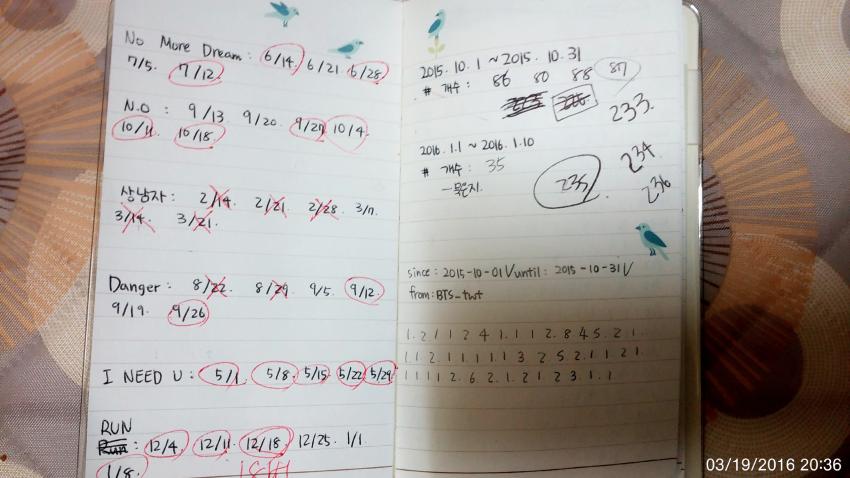 No More Dream : 6/14. 6/21 6/28.
7/5. 7/12
N.O : 9/13 9/20. 9/27 10/4.
10/11 10/18.
상남자 : 2/14. 2/21 2/28. 3/7.
3/14. 3/21.
Danger : 8/22. 8/29 9/5 9/12
9/19. 9/26
I NEED U : 5/1 5/8. 5/15 5/22 5/29
RUN
: 12/4. 12/11 12/18 12/25. 1/1.
1/8.
2015. 10. 1 ~ 2015. 10. 31
# 개수 : 86 80 88 87
233.
2016. 1.1 ~ 2016. 1.10
# 개수 : 35
234
235
236
since : 2015-10-01 V until : 2015-10-31 V
from : BTS_twt
1. 2 1 1 2 4 1. 1 1 2. 8 4 5. 2 1.
1 1 2. 1 1 1. 1 3 2 5 2. 1 1 2 1
1 1 1 1 2. 6 2. 1. 2 1 2 3. 1. 1
03/19/2016 20:36